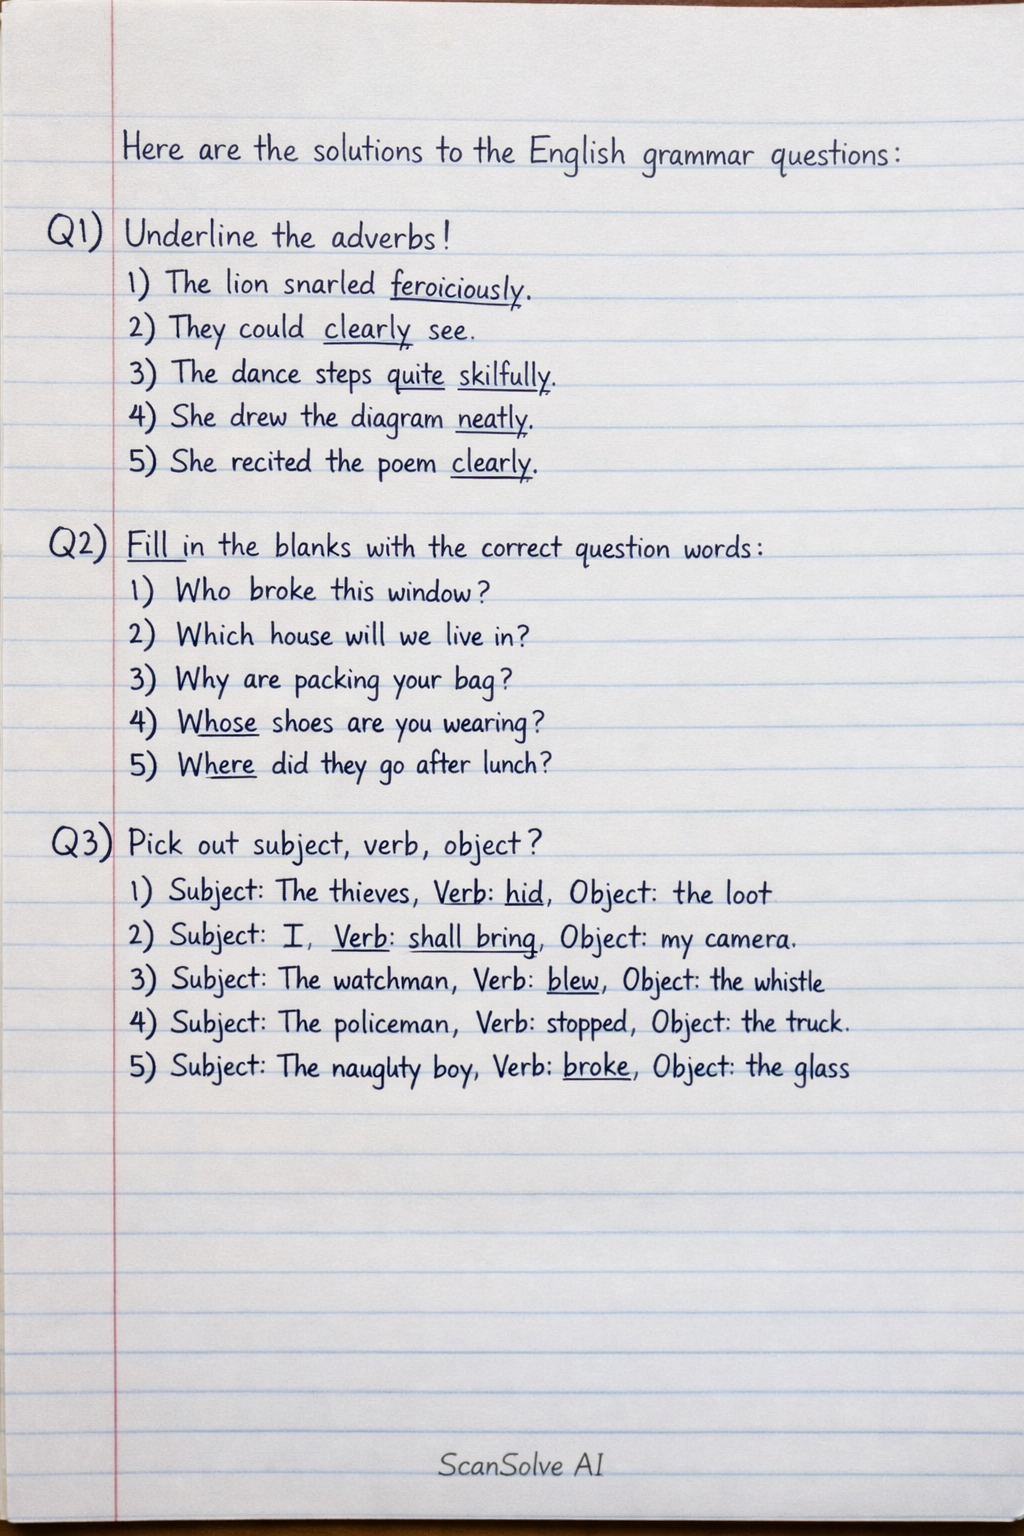 Here are the solutions to the English grammar questions:
Q1) Underline the adverbs!
1) The lion snarled feroiciously.
2) They could clearly see.
3) The dance steps quite skilfully.
4) She drew the diagram neatly.
5) She recited the poem clearly.
Q2) Fill in the blanks with the correct question words:
1) Who broke this window?
2) Which house will we live in?
3) Why are packing your bag?
4) Whose shoes are you wearing?
5) Where did they go after lunch?
Q3) Pick out subject, verb, object?
1) Subject: The thieves, Verb: hid, Object: the loot
2) Subject: I, Verb: shall bring, Object: my camera.
3) Subject: The watchman, Verb: blew, Object: the whistle
4) Subject: The policeman, Verb: stopped, Object: the truck.
5) Subject: The naughty boy, Verb: broke, Object: the glass
ScanSolve AI